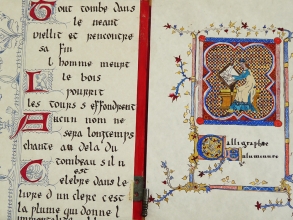 Tout tombe dans
le neant
vieillit et rencontre
sa fin
L homme meurt
Le bois
pourrit
les tours s effondrent
Aucun nom ne
sera longtemps
chante au dela du
Combeau s il n est
Celebre dans le
livre d un clerc c est
la plume qui donne l
Calligraphie